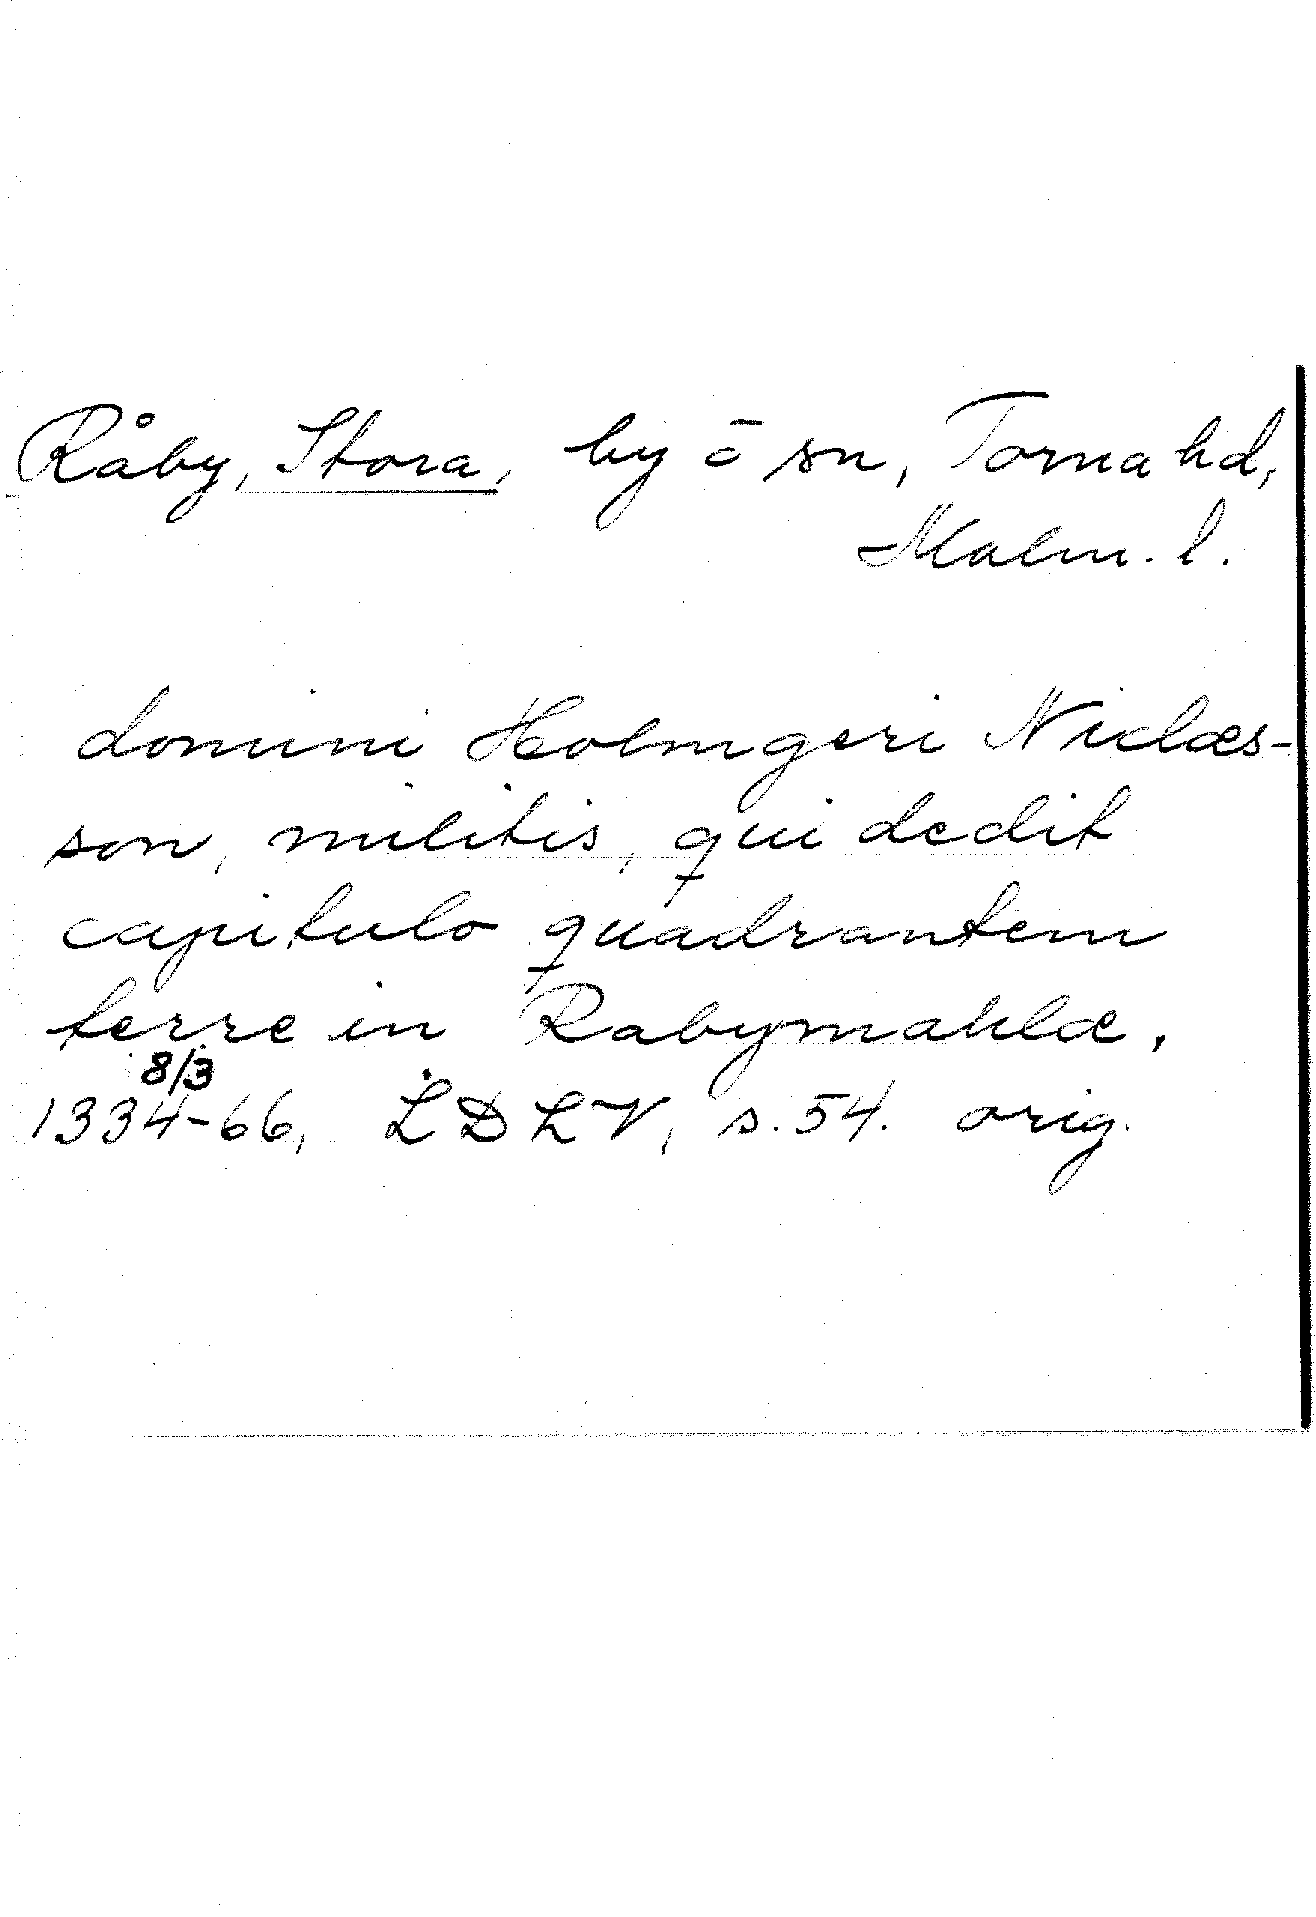 Råby, Stora, by o sn, Torna hd,
Malm. l.
domini Holmgeri Niclæs-
son, militis, qui dedit
capitulo quadrantem
terre in Rabymahlæ,
8/3
1334-66, LDLV, s. 54. orig.